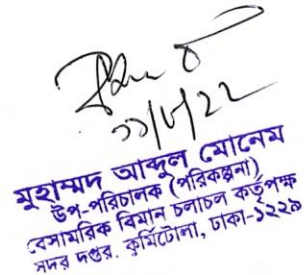 ২১/৮/২২
মুহাম্মদ আব্দুল মোনেম
উপ-পরিচালক (পরিকল্পনা)
বেসামরিক বিমান চলাচল কর্তৃপক্ষ
সদর দপ্তর, কুর্মিটোলা, ঢাকা-১২২৯